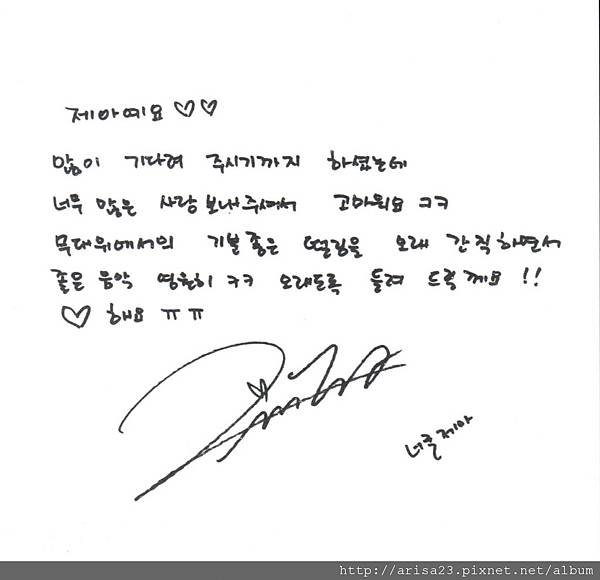 제아예요 ♡♡
많이 기다려 주시기까지 하셨는데
너무 많은 사랑 보내주셔서 고마워요 ㅋㅋ
무대위에서의 기분 좋은 떨림을 오래 간직하면서
좋은 음악 영원히 ㅋㅋ 오래도록 들려 드릴께요 !!
♡ 해요 ㅠㅠ
제아
http://arisa23.pixnet.net/album